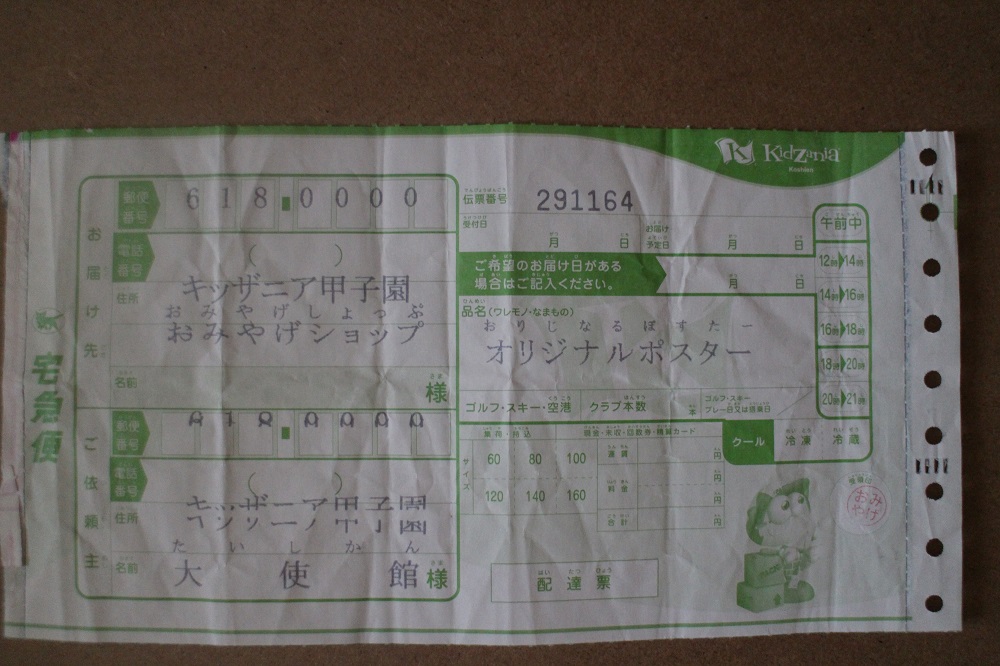 KidZania
Koshien
宅急便
お届け先
郵便番号
618-0000
電話番号
( )
住所
キッザニア甲子園
おみやげしょっぷ
おみやげショップ
名前
さま
様
ご依頼主
郵便番号
電話番号
( )
住所
キッザニア甲子園
たいしかん
名前
大使館
さま
様
でんぴょうばんごう
伝票番号
291164
受付日
がつ
にち
月 日
お届け予定日
月 日
ご希望のお届け日がある
場合はご記入ください。
月 日
ひんめい
品名(ワレモノ・なまもの)
おりじなるぽすたー
オリジナルポスター
ゴルフ・スキー・空港
クラブ本数
本
ゴルフ・スキー
プレー日又は搭乗日
午前中
12時▶14時
14時▶16時
16時▶18時
18時▶20時
20時▶21時
クール
冷凍
冷蔵
サイズ
60 80 100
120 140 160
運賃
円
料金
円
合計
円
受領印
おみやげ
はいたつひょう
配達票